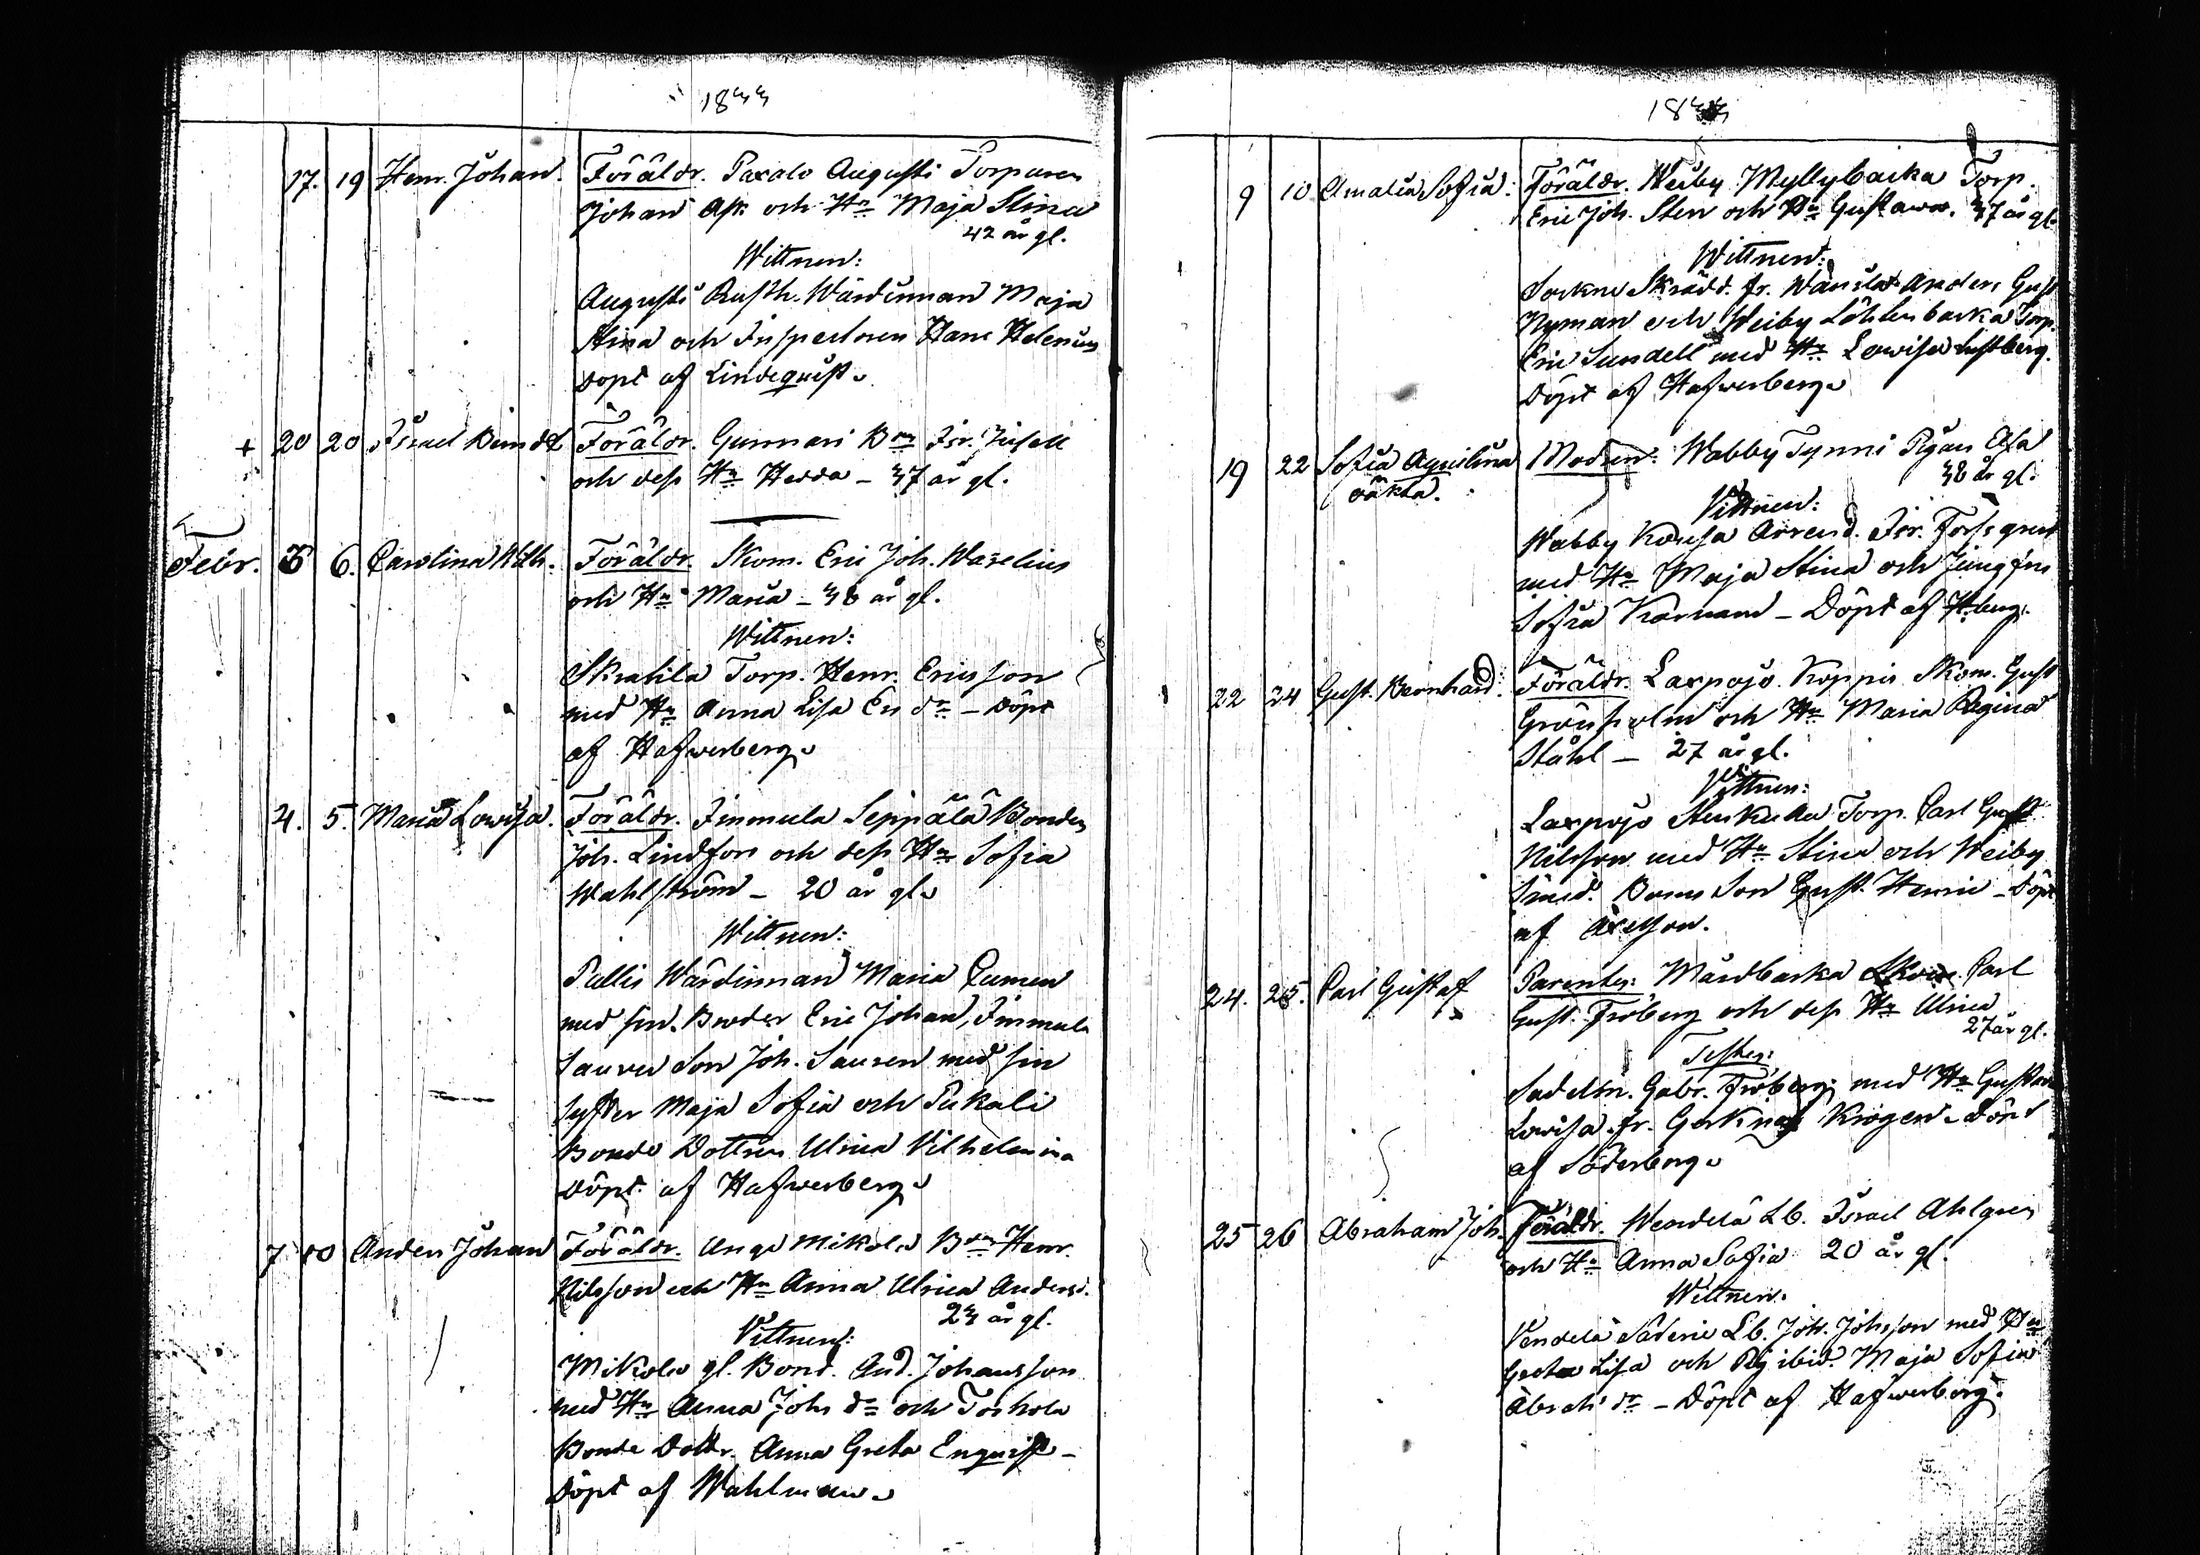 1833
17. 19 Henr. Johan. Föräldr. Paxalo Augusti Torparen
Johan Ask och Hu Maja Stina
42 år gl.
Wittnen:
Augusti Rusth. Wärdinnan Maja
Stina och Inspectoren Hans Helenius
Döpt af Lindequist.
+ 20 20 Israel Berndt Föräldr. Gunnari Bn Isr.
och dess Hu Hedda – 37 år gl.
Febr. 5 6. Carolina Föräldr. Skom. Eric Joh. Waselius
och Hu Maria – 38 år gl.
Wittnen:
Skratila Torp. Henr. Ericsson
med Hu Anna Lisa Ers dr – Döpt
af Hafwerberg.
4. 5. Maria Lowisa. Föräldr. Immula Seppälä Bonden
Joh. Lindfors och dess Hu Sofia
Wahlström – 20 år gl.
Wittnen:
Pallis Wärdinnan Maria
med sin Broder Eric Johan, Immula
Sauren Son Joh. Sauren med sin
Syster Maja Sofia och Pukali
Bonde Dottren Ulrica Vilhelmina
Döpt af Hafwerberg.
7 10 Anders Johan Föräldr. Unga Mikola Bn Henr.
Nilsson och Hu Anna Ulrica Andersd.
23 år gl.
Vittnen:
Mikola gl. Bond. And. Johansson
med Hu Anna Johs dr och Torhola
Bonde Dottr. Anna Greta Enquist –
Döpt af Wahlman.
1833
9 10 Amalia Sofia. Föräldr. Weiby Myllybacka Torp.
Eric Joh. Sten och Hu Gustawa. 37 år gl.
Wittnen:
Sockne Skrädd. fr. Anders Gust
Nyman och Weiby Torp.
Eric Sundell med Hu Lowisa Lustberg.
Döpt af Hafwerberg.
19 22 Sofia Aqvilina Modren: Wabby Tynni Pigan
oäkta. 38 år gl.
Vittnen:
Wabby Arrend. Isr. Forsgren
med Hu Maja Stina och Jungfru
Sofia – Döpt af Hberg.
22 24 Gust. Bernhard. Föräldr. Laxpojo Koppis Skom. Gust
Grönholm och Hu Maria Regina
Ståhl – 27 år gl.
Vittnen:
Laxpojo Torp. Carl Gust
Nilsson med Hu Stina och Weiby
Smed. Son Gust. Henric – Döpt
af
24. 25. Carl Gustaf Parentes: Mårdbacka Carl
Gust. Fröberg och dess Hu Ulrica
27 år gl.
Testes:
Gabr. Fröberg med Hu Gustava
Lowisa fr. Gerknäs Krogen – Döpt
af Söderberg.
25 26 Abraham Joh. Föräldr. Wendelä Lb. Israel Ahlgren
och Hu Anna Sofia 20 år gl.
Wittnen.
Vendelä Lb. Joh. Johsson med Hu
Greta Lisa och Pig ibid. Maja Sofia
Abrah dr – Döpt af Hafwerberg.